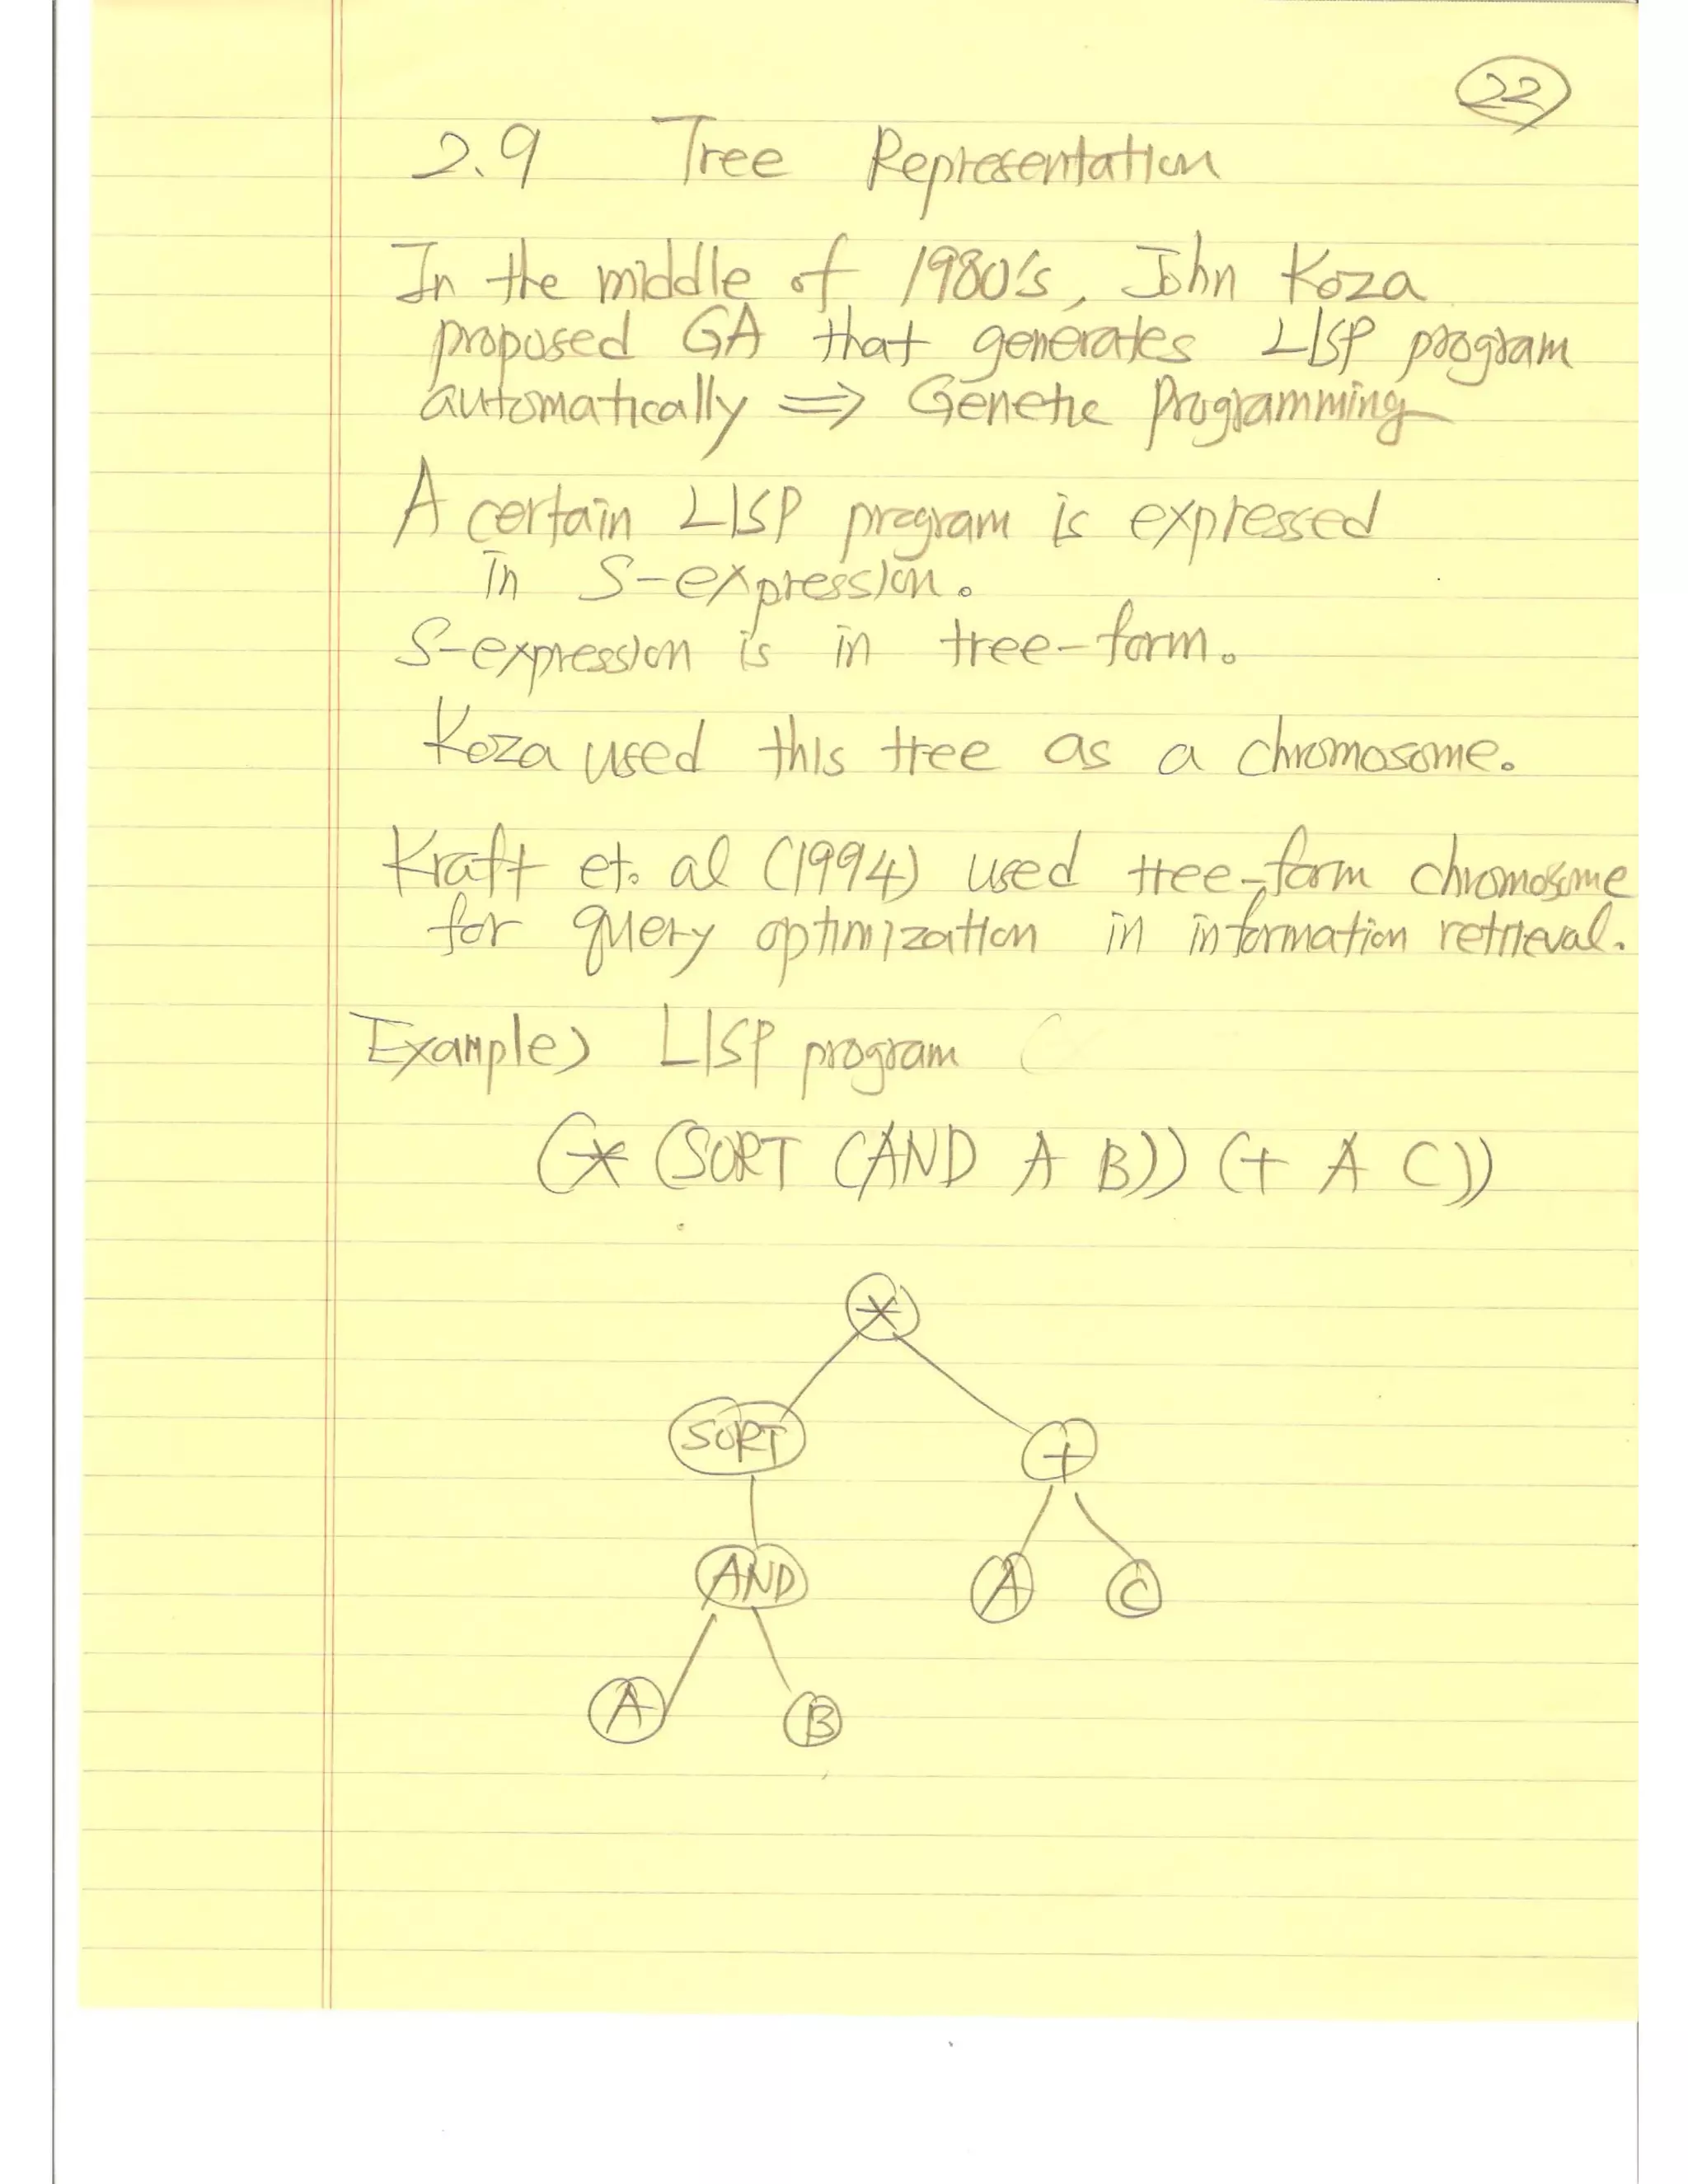 22
2.9 Tree Representation
In the middle of 1980's, John Koza
proposed GA that generates LISP program
automatically => Genetic Programming
A certain LISP program is expressed
in S-expression.
S-expression is in tree-form.
Koza used this tree as a chromosome.
Kraft et. al (1994) used tree-form chromosome
for query optimization in information retrieval.
Example) LISP program
(* (SORT (AND A B)) (+ A C))
*
SORT +
AND A C
A B